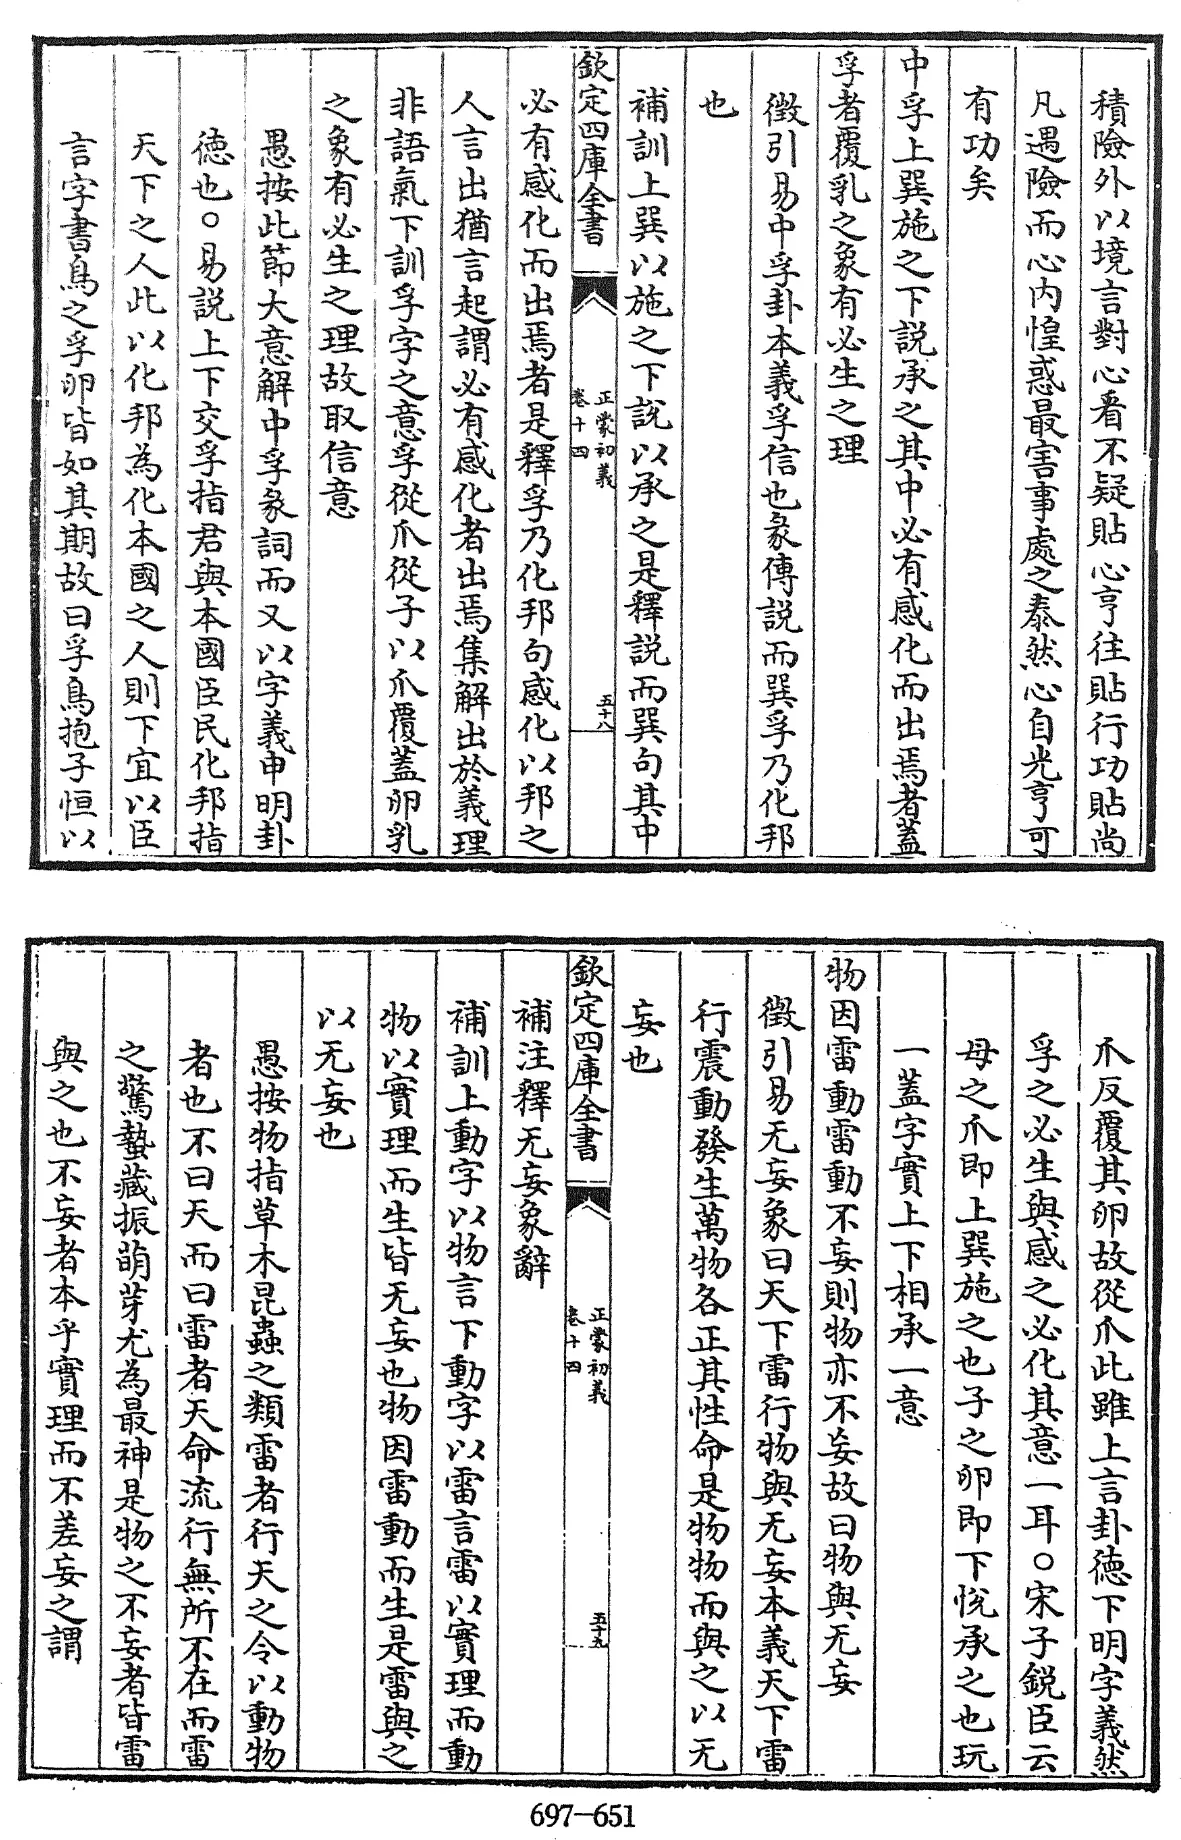 積險外以境言對心看不疑貼心亨往貼行功貼尚
凡遇險而心内惶惑最害事處之泰然心自光亨可
有功矣
中孚上巽施之下説承之其中必有感化而出焉者蓋
孚者覆乳之象有必生之理
徴引易中孚卦本義孚信也彖傳説而巽孚乃化邦
也
補訓上巽以施之下説以承之是釋説而巽句其中
欽定四庫全書
正蒙初義
卷十四
五十八
必有感化而出焉者是釋孚乃化邦句感化以邦之
人言出猶言起謂必有感化者出焉集解出於義理
非語氣下訓孚字之意孚從爪從子以爪覆蓋卵乳
之象有必生之理故取信意
愚按此節大意解中孚彖詞而又以字義申明卦
徳也○易説上下交孚指君與本國臣民化邦指
天下之人此以化邦為化本國之人則下宜以臣
言字書鳥之孚卵皆如其期故曰孚鳥抱子恒以
爪反覆其卵故從爪此雖上言卦徳下明字義然
孚之必生與感之必化其意一耳○宋子鋭臣云
母之爪即上巽施之也子之卵即下悦承之也玩
一蓋字實上下相承一意
物因雷動雷動不妄則物亦不妄故曰物與无妄
徴引易无妄象曰天下雷行物與无妄本義天下雷
行震動發生萬物各正其性命是物物而與之以无
妄也
欽定四庫全書
正蒙初義
卷十四
五十九
補注釋无妄象辭
補訓上動字以物言下動字以雷言雷以實理而動
物以實理而生皆无妄也物因雷動而生是雷與之
以无妄也
愚按物指草木昆蟲之類雷者行天之令以動物
者也不曰天而曰雷者天命流行無所不在而雷
之驚蟄藏振萌芽尤為最神是物之不妄者皆雷
與之也不妄者本乎實理而不差妄之謂
697—651